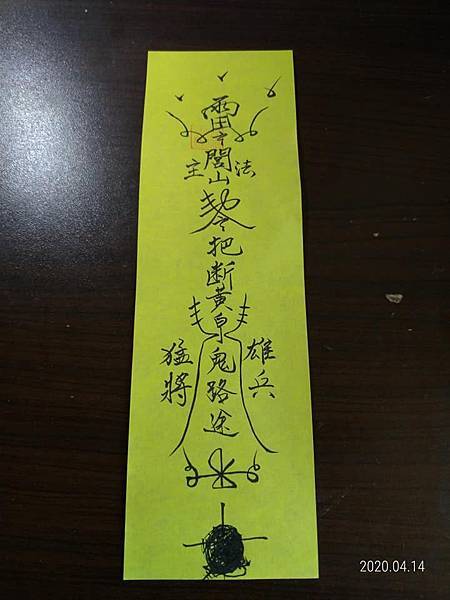 雷
閭山
法主
敕令
把断黄泉鬼路途
雄兵
猛將
2020.04.14